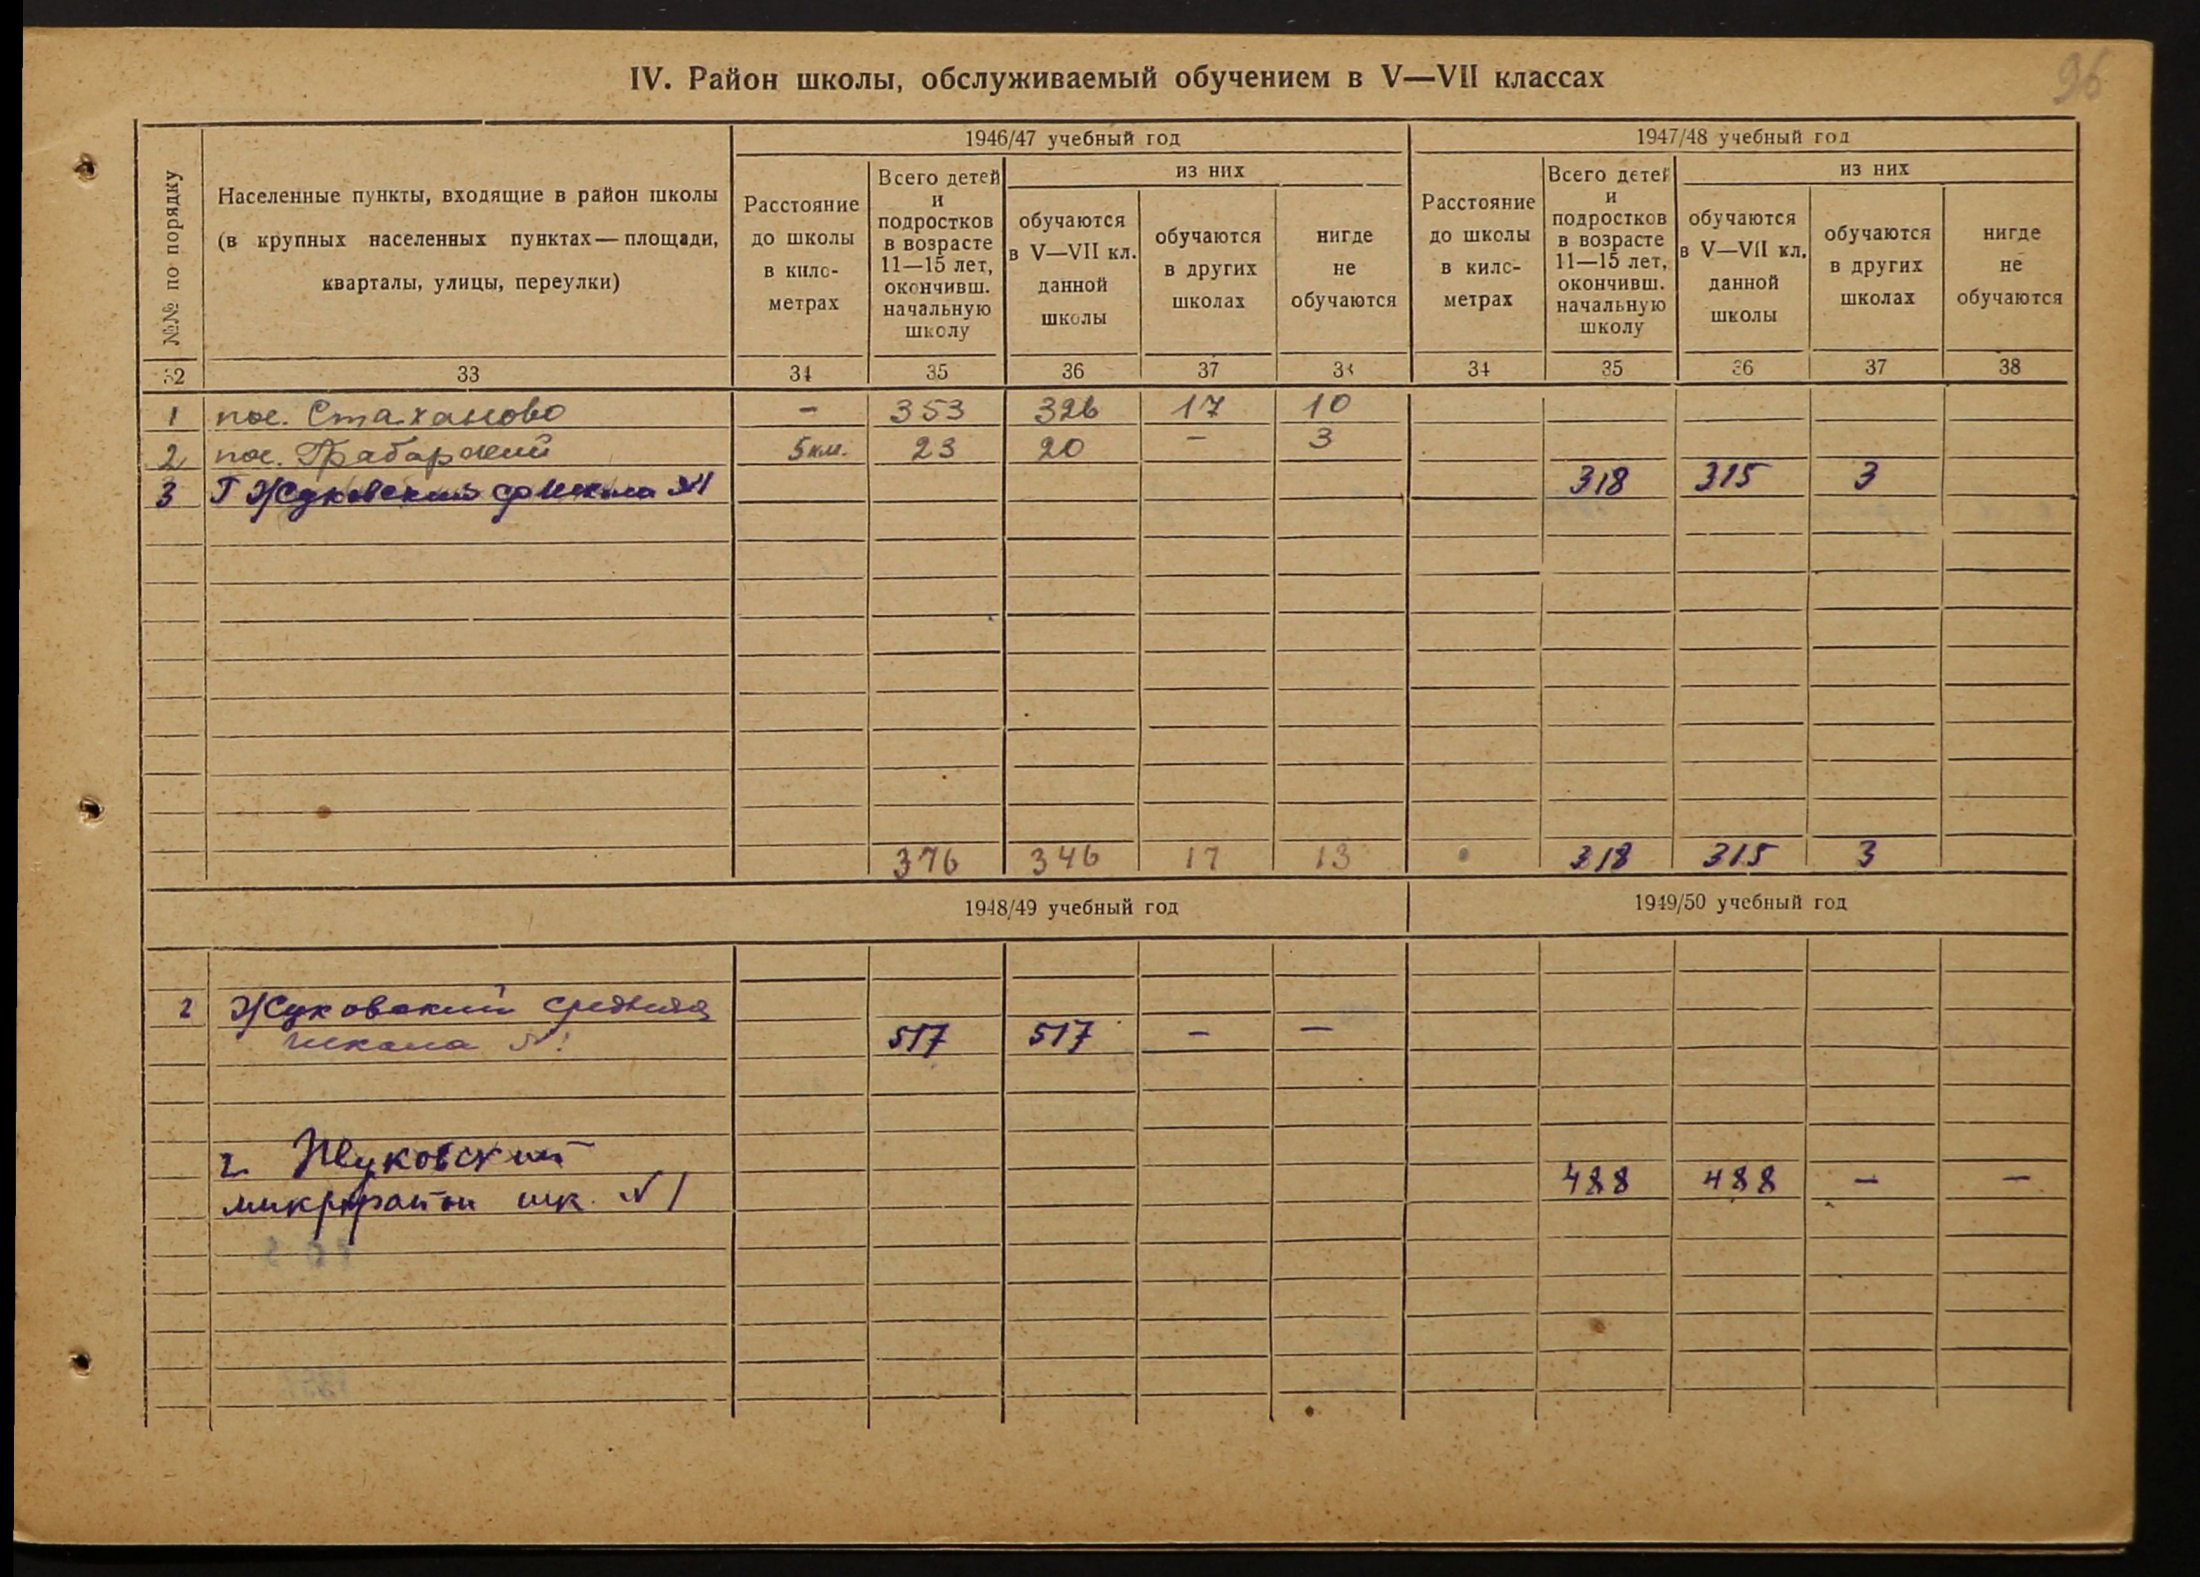 96
IV. Район школы, обслуживаемый обучением в V—VII классах
№№ по порядку
Населенные пункты, входящие в район школы
(в крупных населенных пунктах—площади,
кварталы, улицы, переулки)
1946/47 учебный год
Расстояние
до школы
в кило-
метрах
Всего детей
и
подростков
в возрасте
11—15 лет,
окончивш.
начальную
школу
из них
обучаются
в V—VII кл.
данной
школы
обучаются
в других
школах
нигде
не
обучаются
1947/48 учебный год
Расстояние
до школы
в кило-
метрах
Всего детей
и
подростков
в возрасте
11—15 лет,
окончивш.
начальную
школу
из них
обучаются
в V—VII кл.
данной
школы
обучаются
в других
школах
нигде
не
обучаются
32 33 34 35 36 37 38 34 35 36 37 38
1 пос. Стаханово — 353 326 17 10
2 пос. Грабарский 5 км. 23 20 — 3
3 Г Жуковский ср школа №1 318 315 3
376 346 17 13 318 315 3
1948/49 учебный год 1949/50 учебный год
г Жуковский средняя
школа № 517 517 — —
г. Жуковский
микрорайон шк. №1 488 488 — —